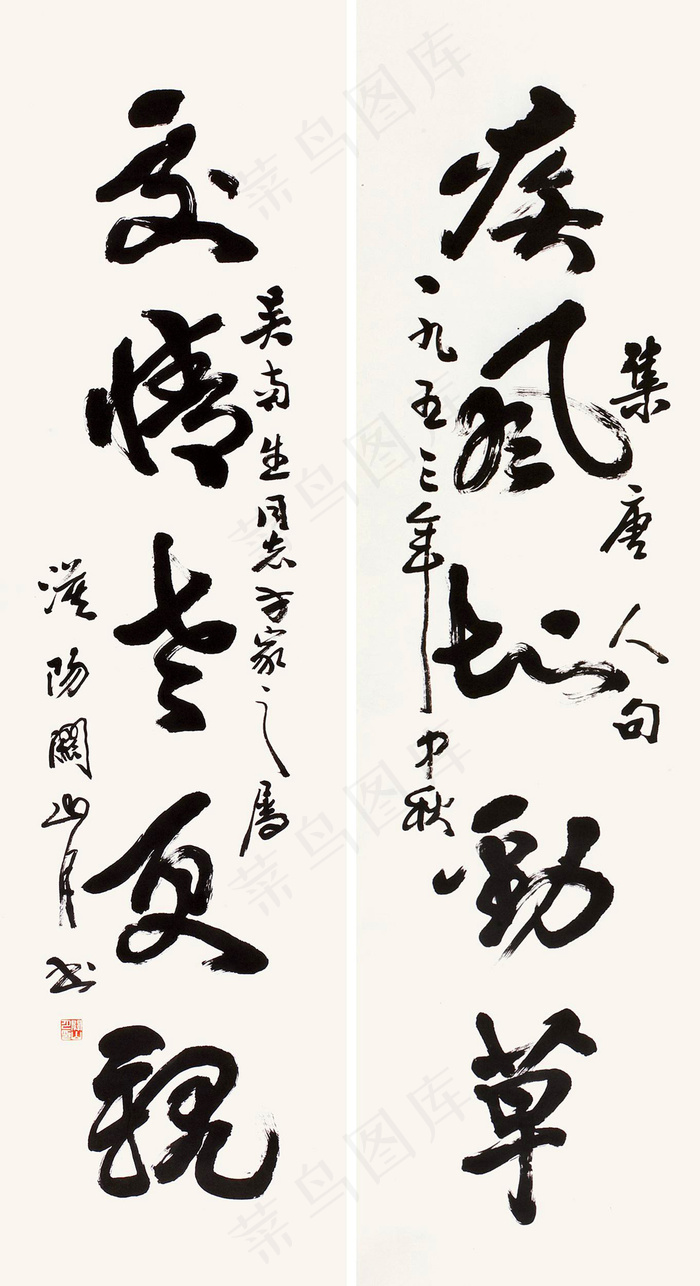 集唐人句
疾風知勁草
一九五三年中秋
吴南生同志方家之属
交情老更親
漠陽關山月书
菜鸟图库
菜鸟图库
菜鸟图库
菜鸟图库